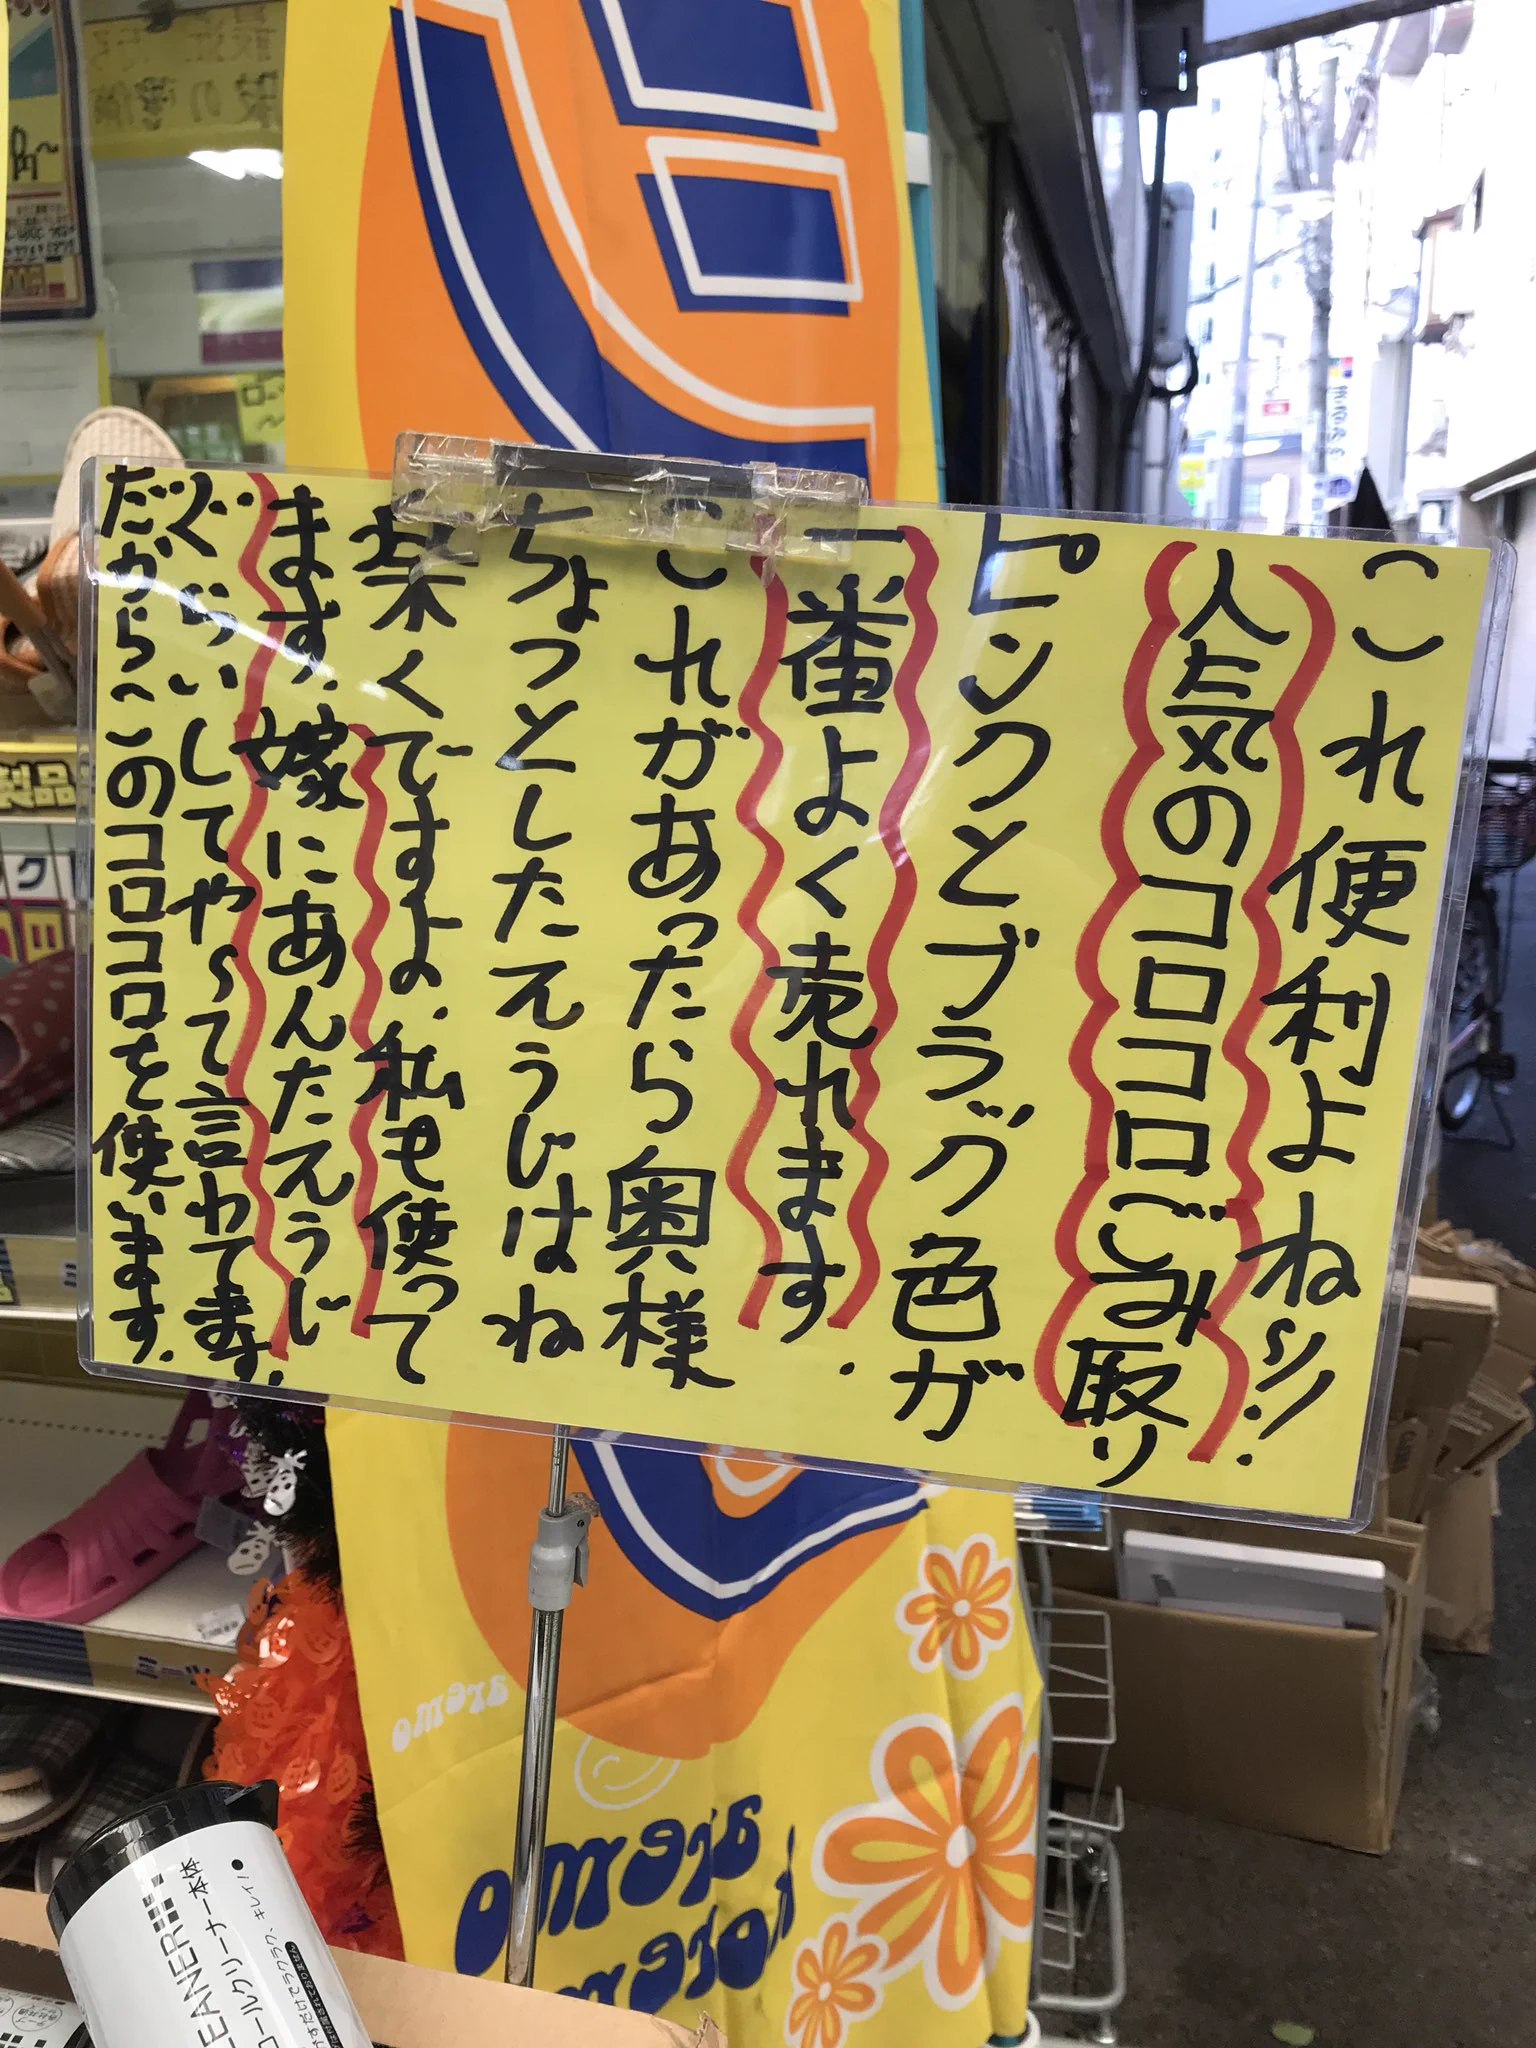 これ便利よね〜!!!
人気のコロコロごみ取り
ピンクとブラック色が
一番よく売れます.
これがあったら奥様
ちょっとしたえうじはね
楽くですよ.私も使って
ます.嫁にあんたえうじ
ぐらいしてや〜て言われてます.
だから〜このコロコロを使います.
製品
LEANER
ロールクリーナー本体
aremo
aremo